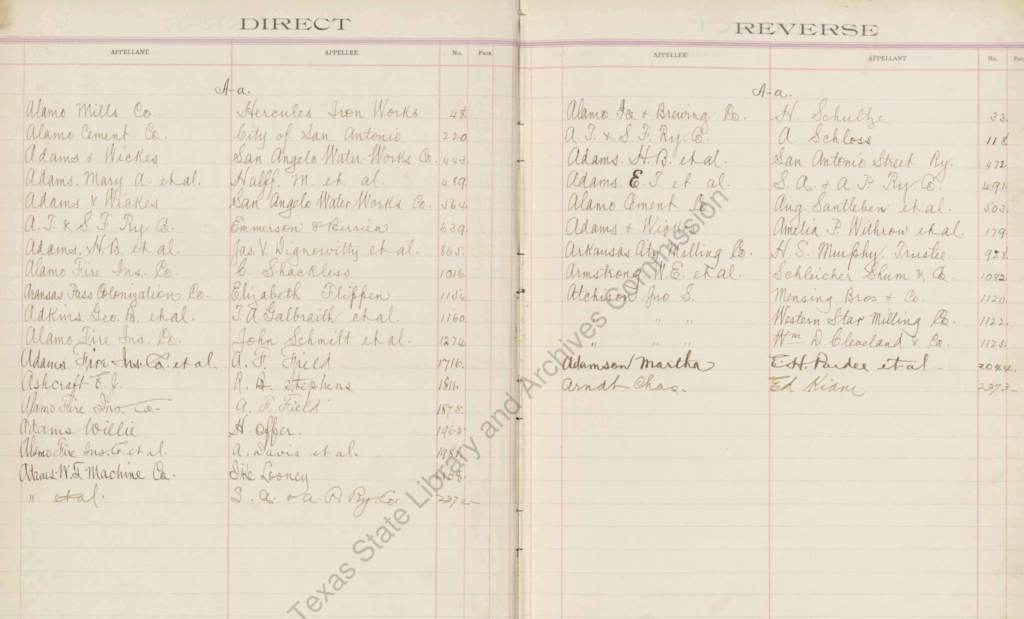 DIRECT
APPELLANT APPELLEE No. PAGE
A-a.
Alamo Mills Co. Hercules Iron Works 48
Alamo Cement Co. City of San Antonio 220
Adams & Wickes San Angelo Water Works Co. 443
Adams, Mary A. et al. Halff, M. et al. 489
Adams & Wickes San Angelo Water Works Co. 564
A.T. & S.F. Ry Co. Emmerson & Berrien 639
Adams, H.B. et al. Jas. V. Dignowitty et al. 865
Alamo Fire Ins. Co. C. Shackless 1016
Aransas Pass Colonization Co. Elizabeth Flippen 1154
Adkins, Geo. B. et al. T.A. Galbraith et al. 1160
Alamo Fire Ins. Co. John Schmitt et al. 1274
Adams Fire Ins. Co. et al. A. F. Field 1716
Ashcraft E. J. R. B. Stephens 1811
Alamo Fire Ins. Co. A. F. Field 1875
Adams Willie H. Offer.
Alamo Fire Ins. Co. et al. A. Davis et al.
Adams W.J. Machine Co. Ike Looney
" et al. S. A. & A. P. Ry. Co.
REVERSE
APPELLEE APPELLANT No.
A-a.
Alamo Ice & Brewing Co. H. Schultze 33
A.T. & S.F. Ry. Co. A Schloss 118
Adams, H.B. et al. San Antonio Street Ry. 472
Adams, E.T. et al. S. A. & A. P. Ry. Co. 491
Alamo Cement Co. Aug. Santleben et al. 503
Adams & Wickes Amelia P. Withrow et al. 179
Arkansas City Milling Co. H. S. Murphy, Trustee. 928
Armstrong, W.E. et al. Schleicher Shum & Co. 1082
Atchison, Jno S. Mensing Bros & Co. 1120
" " Western Star Milling Co. 1122
" Wm D. Cleveland & Co. 1125
Adamson Martha E.H. Pardee et al. 2044
Arndt Chas. Ed
Texas State Library and Archives Commission